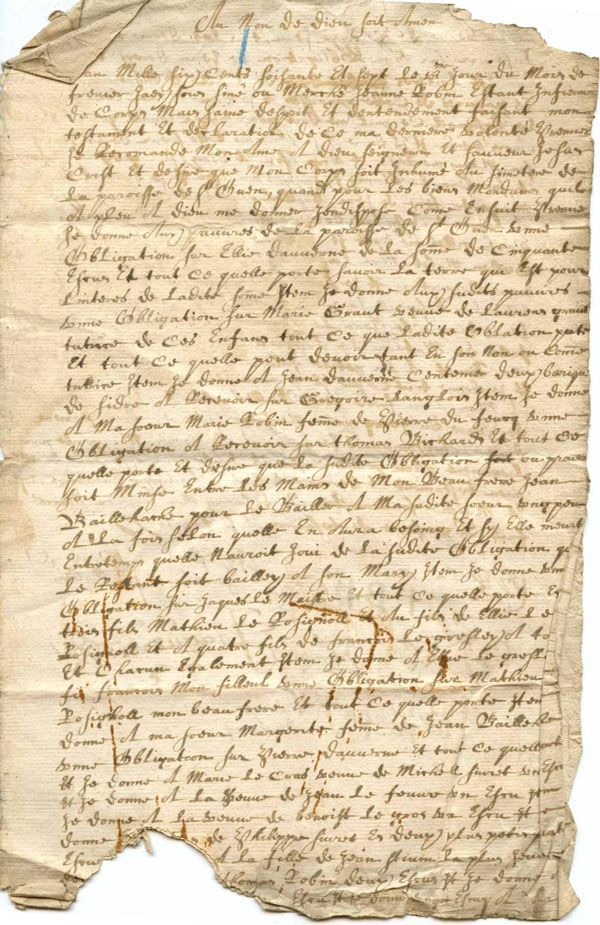 Au Non de dieu soit Amen
Lan Mille six Cents soisante Et sept le 15e Jour du Mois de
fevrier Jaey sous siné ou Merché Jeanne Robin Estant Infierme
de Corps Mais saine desprit Et dentendement faisant mon
testament Et declaration de Ce ma derniere volonté
Je Recomande Mon Ame A dieu seigneur Et sauveur Jesus
Crist Et desire que Mon Corps soit Inhumé Au simetere de
La paroisse de St Ouen, quand pour Les biens Mondains quil
A pleu A dieu me donner Jen dispose Come Ensuit
Je donne Aux pauvres de La paroisse de St Ouen vnne
Obligation sur Ellie dauverne de La some de Cinquante
Escus Et tout Ce quelle porte savoir La terre qui Est pour
Linteres de Ladite some Item Je donne Aux sudits pauvres
vnne Obligation sur Marie Graut veuve de Laurens graut
tutrice de Ces Enfans tout Ce que Ladite Oblation porte
Et tout Ce quelle peut devoir tant En son Non ou Come
tuttrice Item Je donne A Jean dauverne Centenier deux barique
de sidre A Recevoir sur Gregoire Langlois Item Je donne
A Ma soeur Marie Robin feme de Pierre du feucq vnne
Obligation A Recevoir sur thomas Bichard Et tout Ce
quelle porte Et desire que La sudite Obligation
soit Minse Entre Les Mains de Mon Beau frere Jean
Baillehache pour Le Bailler A Ma sudite soeur vng peu
A La fois selon quelle En Aura besoing Et sy Elle meurt
Entretemps quelle Nauroit Joui de La sudite Obligation q
Le Restant soit bailley A son Mary Item Je donne vn
Obligation sur Jaques Le Maistre Et tout Ce quelle porte Es
trois fils Mathieu Le Rosignoll Et Au fils de Ellie Le
Rosignoll Et A quatre fils de francois Le gresley A to
Et Chacun Egalement Item Je donne A Ellie Le gresl
fs francois Mon filleul vnne Obligation sur Mathieu
Rosignoll mon beau frere Et tout Ce quelle porte Item
donne A ma soeur Margerite feme de Jean Baillehach
vnne Obligation sur Pierre dauverne Et tout Ce quelle porte
Et Je donne A Marie Le Cras veuve de Michell suret vn Escu
It Je donne A La veuve de Jean Le feuvre vn Escu Item
Je donne A La veuve de benoist Le gros vn Escu It Je
donne de Philippe suret Es deux plus petis
Escu A La fille de Jean La plus Jeune
thomas Robin deux Escus It Je donne A
Escu It Je donne Escus A